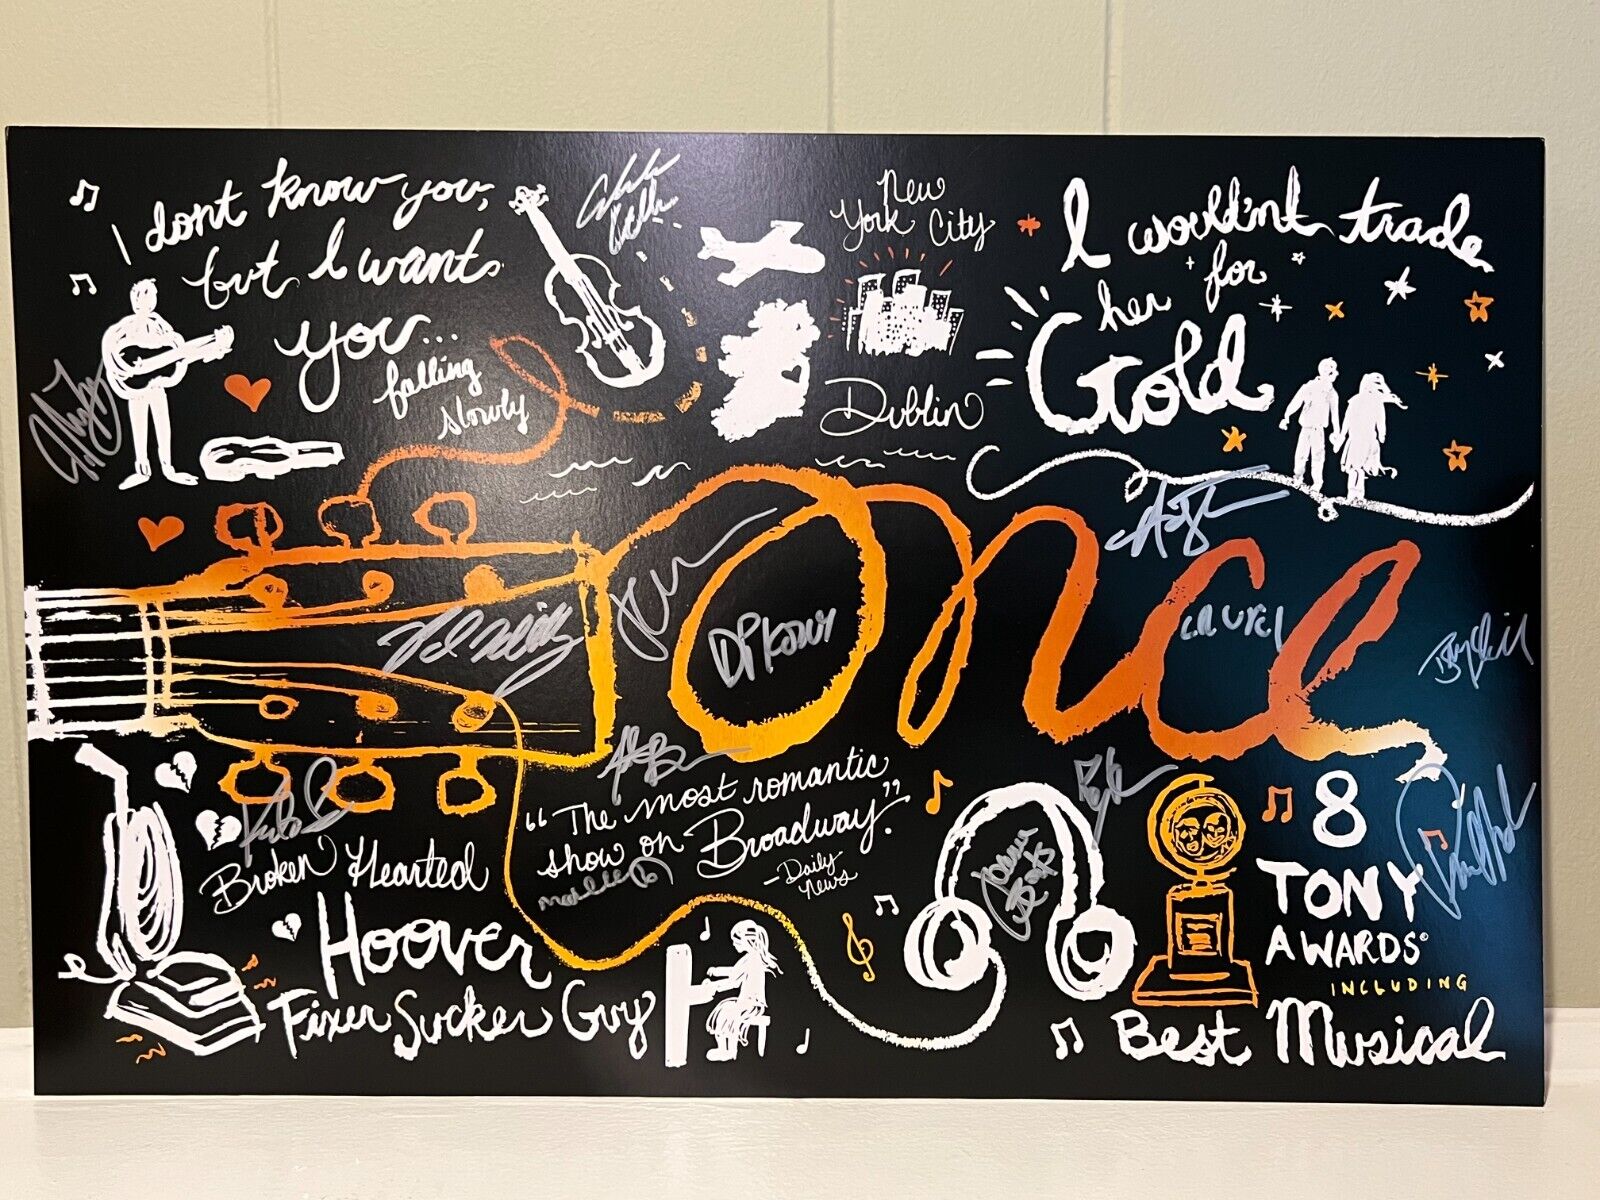 I don't know you,
but I want
you...
falling
slowly
New
York City
Dublin
I wouldn't trade
her for
Gold
once
DPKorn
Laurel
"The most romantic
show on Broadway."
-Daily
News
Broken Hearted
Hoover
Fixer Sucker Guy
8
TONY
AWARDS®
INCLUDING
Best Musical